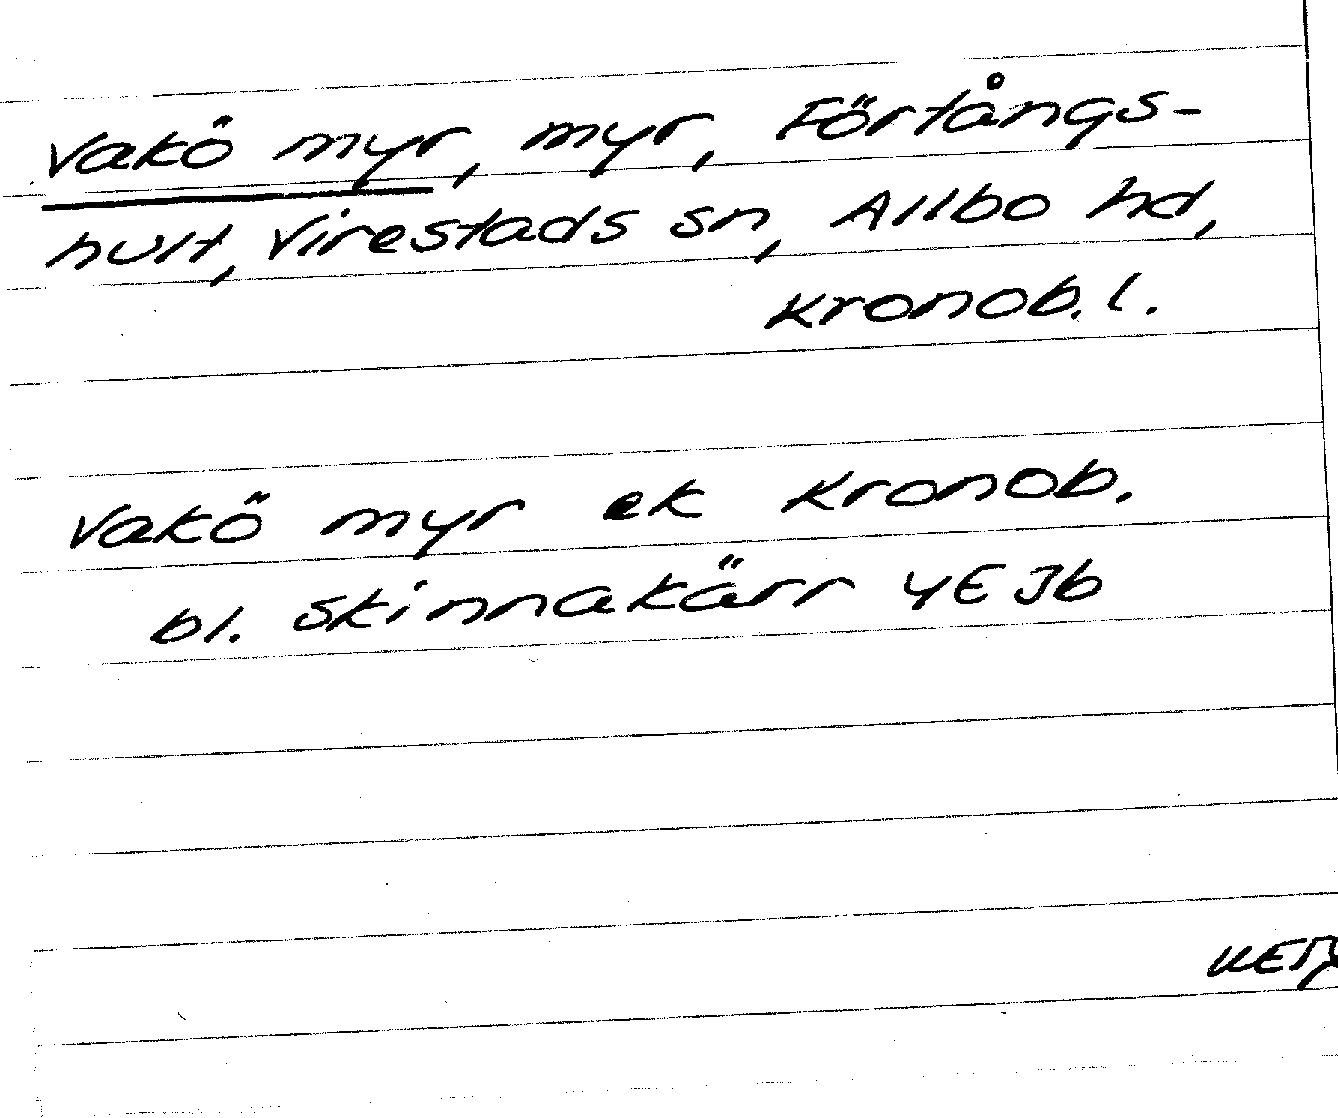 Vakö myr, myr, Förtångs-
hult, Virestads sn, Allbo hd,
Kronob. l.
Vakö myr ek Kronob.
bl. Skinnakärr 4E Jb